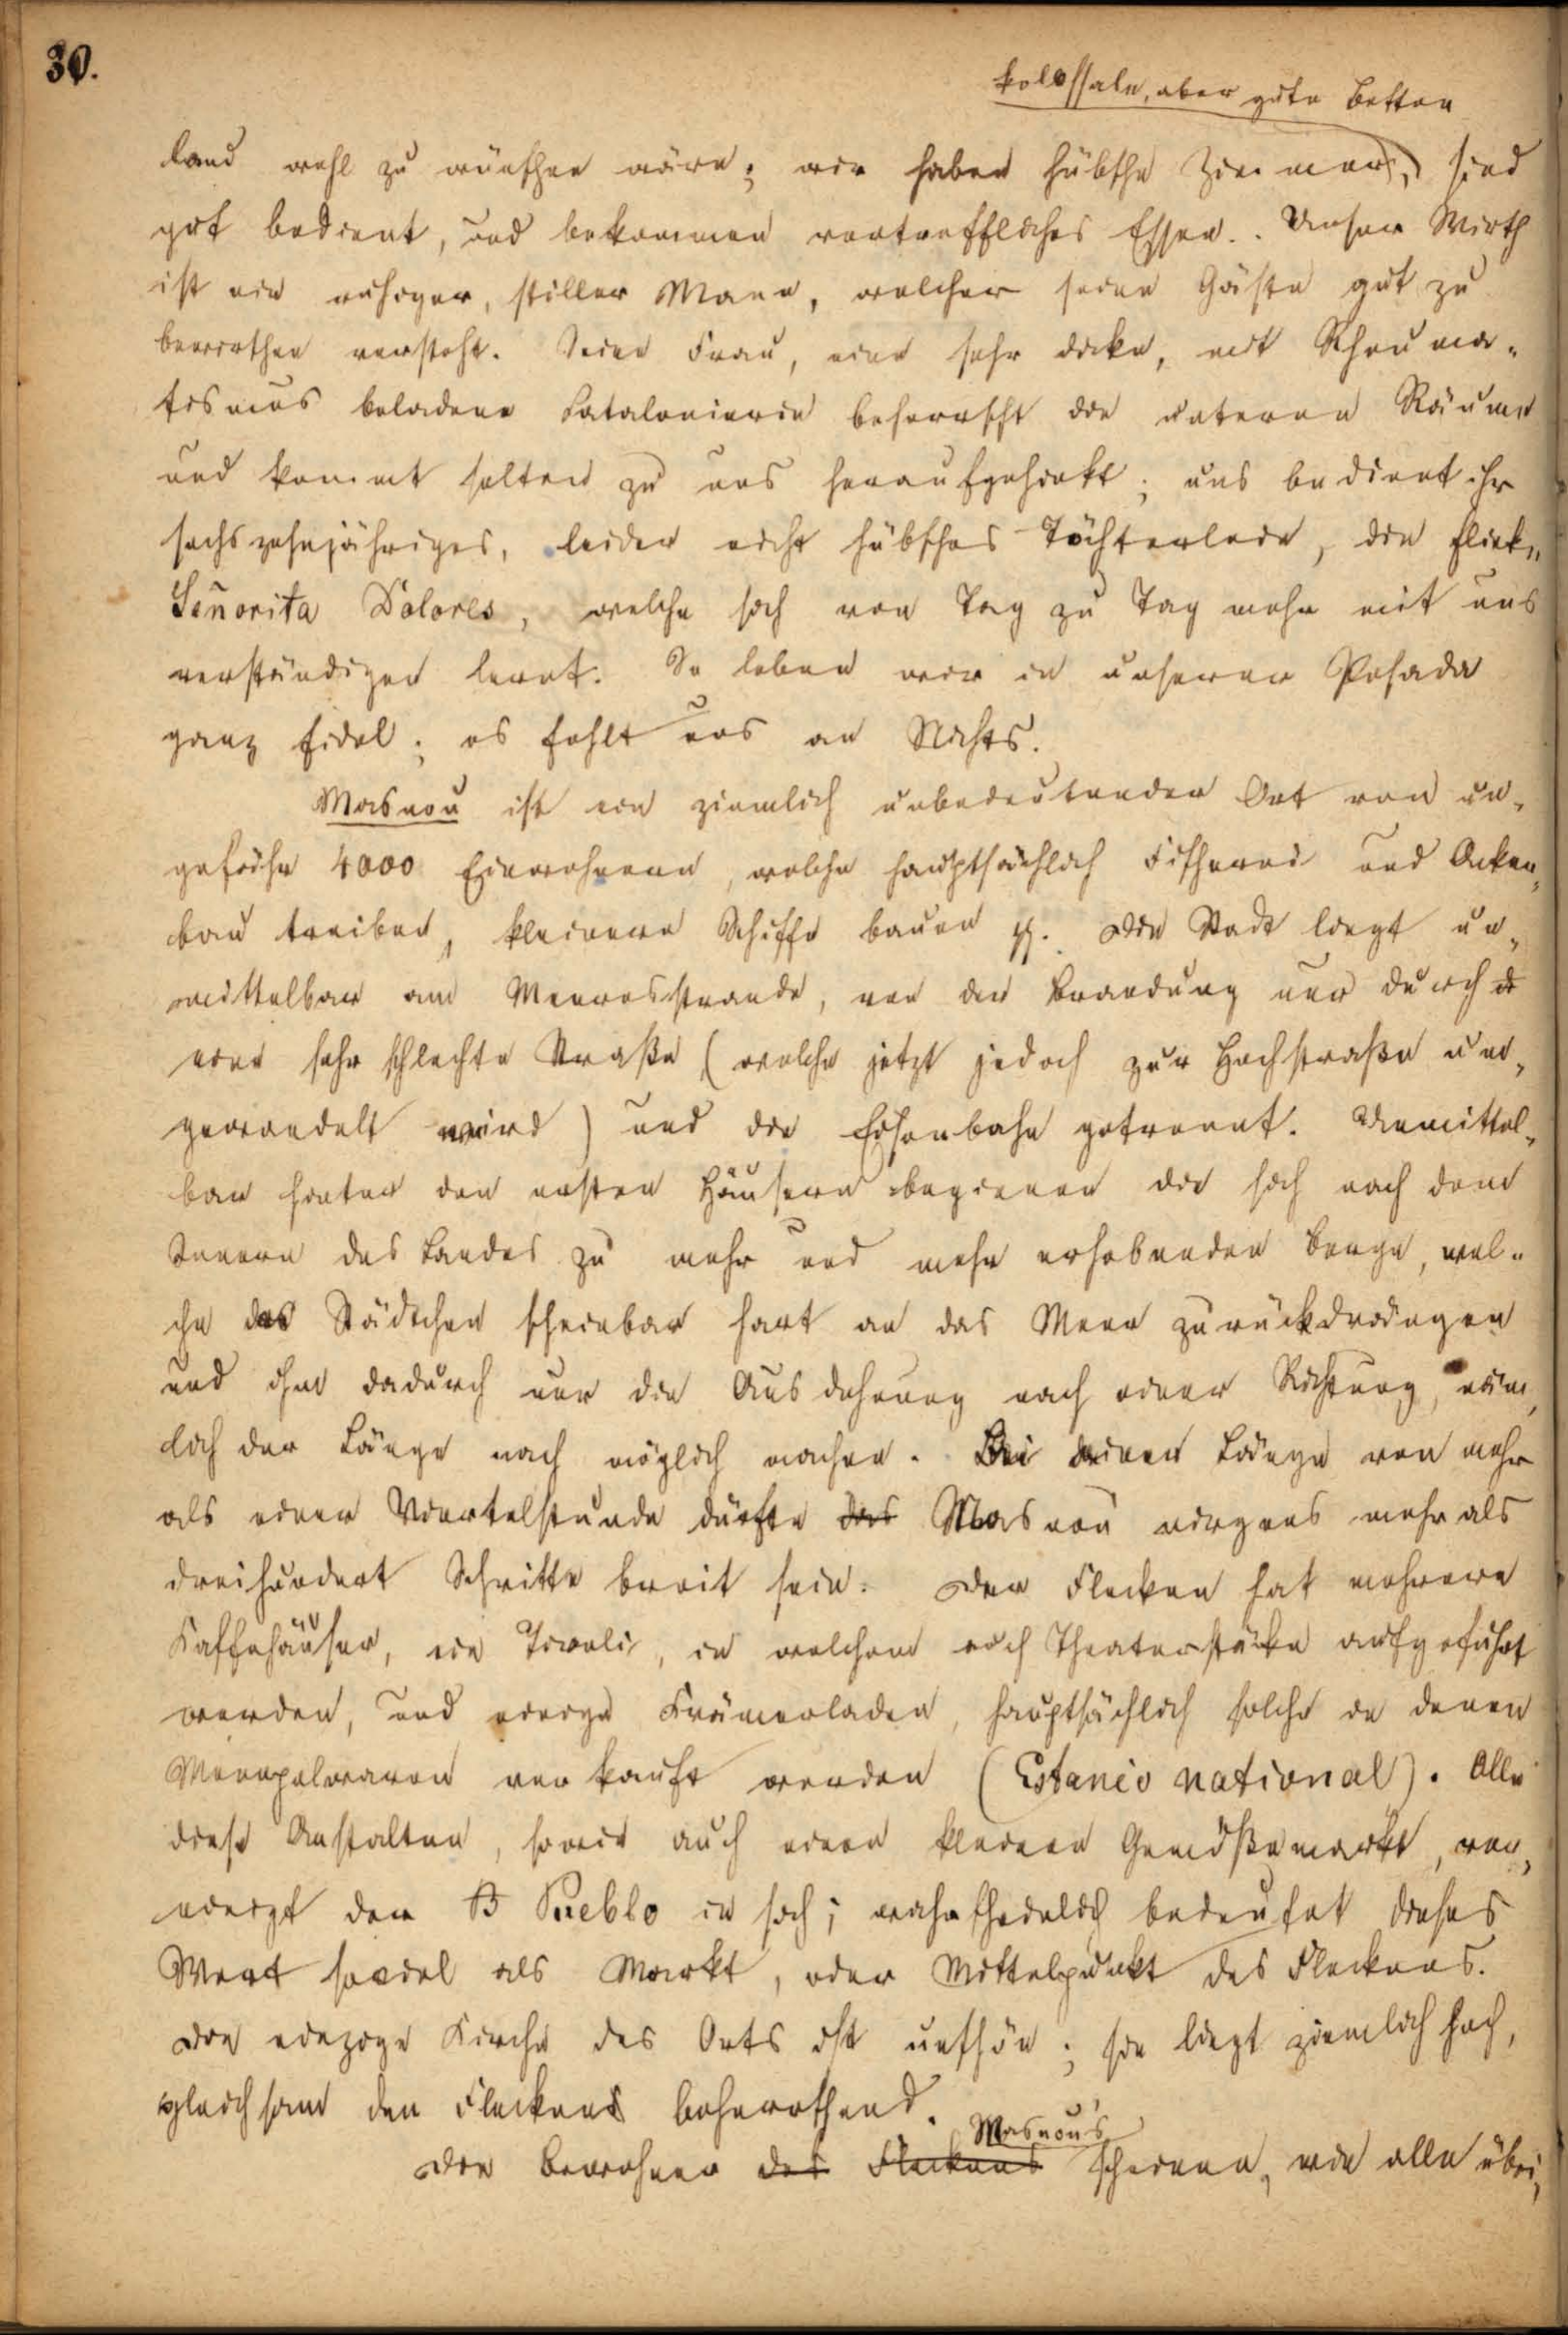 30.
kolossale, aber gute Betten
land wohl zu wünschen wäre; wir haben hübsche Zimmer, sind
gut bedient, und bekommen vortreffliches Essen. Unser Wirth
ist ein ruhiger, stiller Mann, welcher seine Gäste gut zu
bewirthen versteht. Seine Frau, eine sehr dicke, mit Rheuma-
tismus beladene Catalonierin beherrscht die unteren Räume
und kommt selten zu uns heraufgehinkt; uns bedient ihr
sechszehnjähriges, leider nicht hübsches Töchterlein, die flinke
Señorita Dolores, welche sich von Tag zu Tag mehr mit uns
verständigen lernt. So leben wir in unserer Posada
ganz fidel; es fehlt uns an Nichts.
Masnou ist ein ziemlich unbedeutender Ort von un-
gefähr 4000 Einwohnern, welche hauptsächlich Fischerei und Acker-
bau treiben, kleinere Schiffe bauen pp. Die Stadt liegt un-
mittelbar am Meeresstrande, von der Brandung nur durch
eine sehr schlechte Straße (welche jetzt jedoch zur Hochstraße um-
gewandelt wird) und die Eisenbahn getrennt. Unmittel-
bar hinter den ersten Häusern beginnen die sich nach dem
Innern des Landes zu mehr und mehr erhebenden Berge, wel-
che das Städtchen scheinbar hart an das Meer zurückdrängen
und ihm dadurch nur die Ausdehnung nach einer Richtung, näm-
lich der Länge nach möglich machen. Bei einer Länge von mehr
als einer Viertelstunde dürfte das Masnou nirgens mehr als
dreihundert Schritte breit sein. Der Flecken hat mehrere
Kaffehäuser, ein Tivoli, in welchem auch Theaterstücke aufgeführt
werden, und einige Krämerladen, hauptsächlich solche in denen
Monopolwaren verkauft werden (Estanco national). Alle
diese Anstalten, sowie auch einen kleinen Gemüßemarkt, ver-
einigt der Pueblo in sich; wahrscheinlich bedeutet dieses
Wort soviel als Markt, oder Mittelpunkt des Fleckens.
Die einzige Kirche des Orts ist unschön; sie liegt ziemlich hoch,
gleichsam den Flecken beherrschend.
Masnou's
Die Bewohner des Fleckens scheinen, wie alle übri-